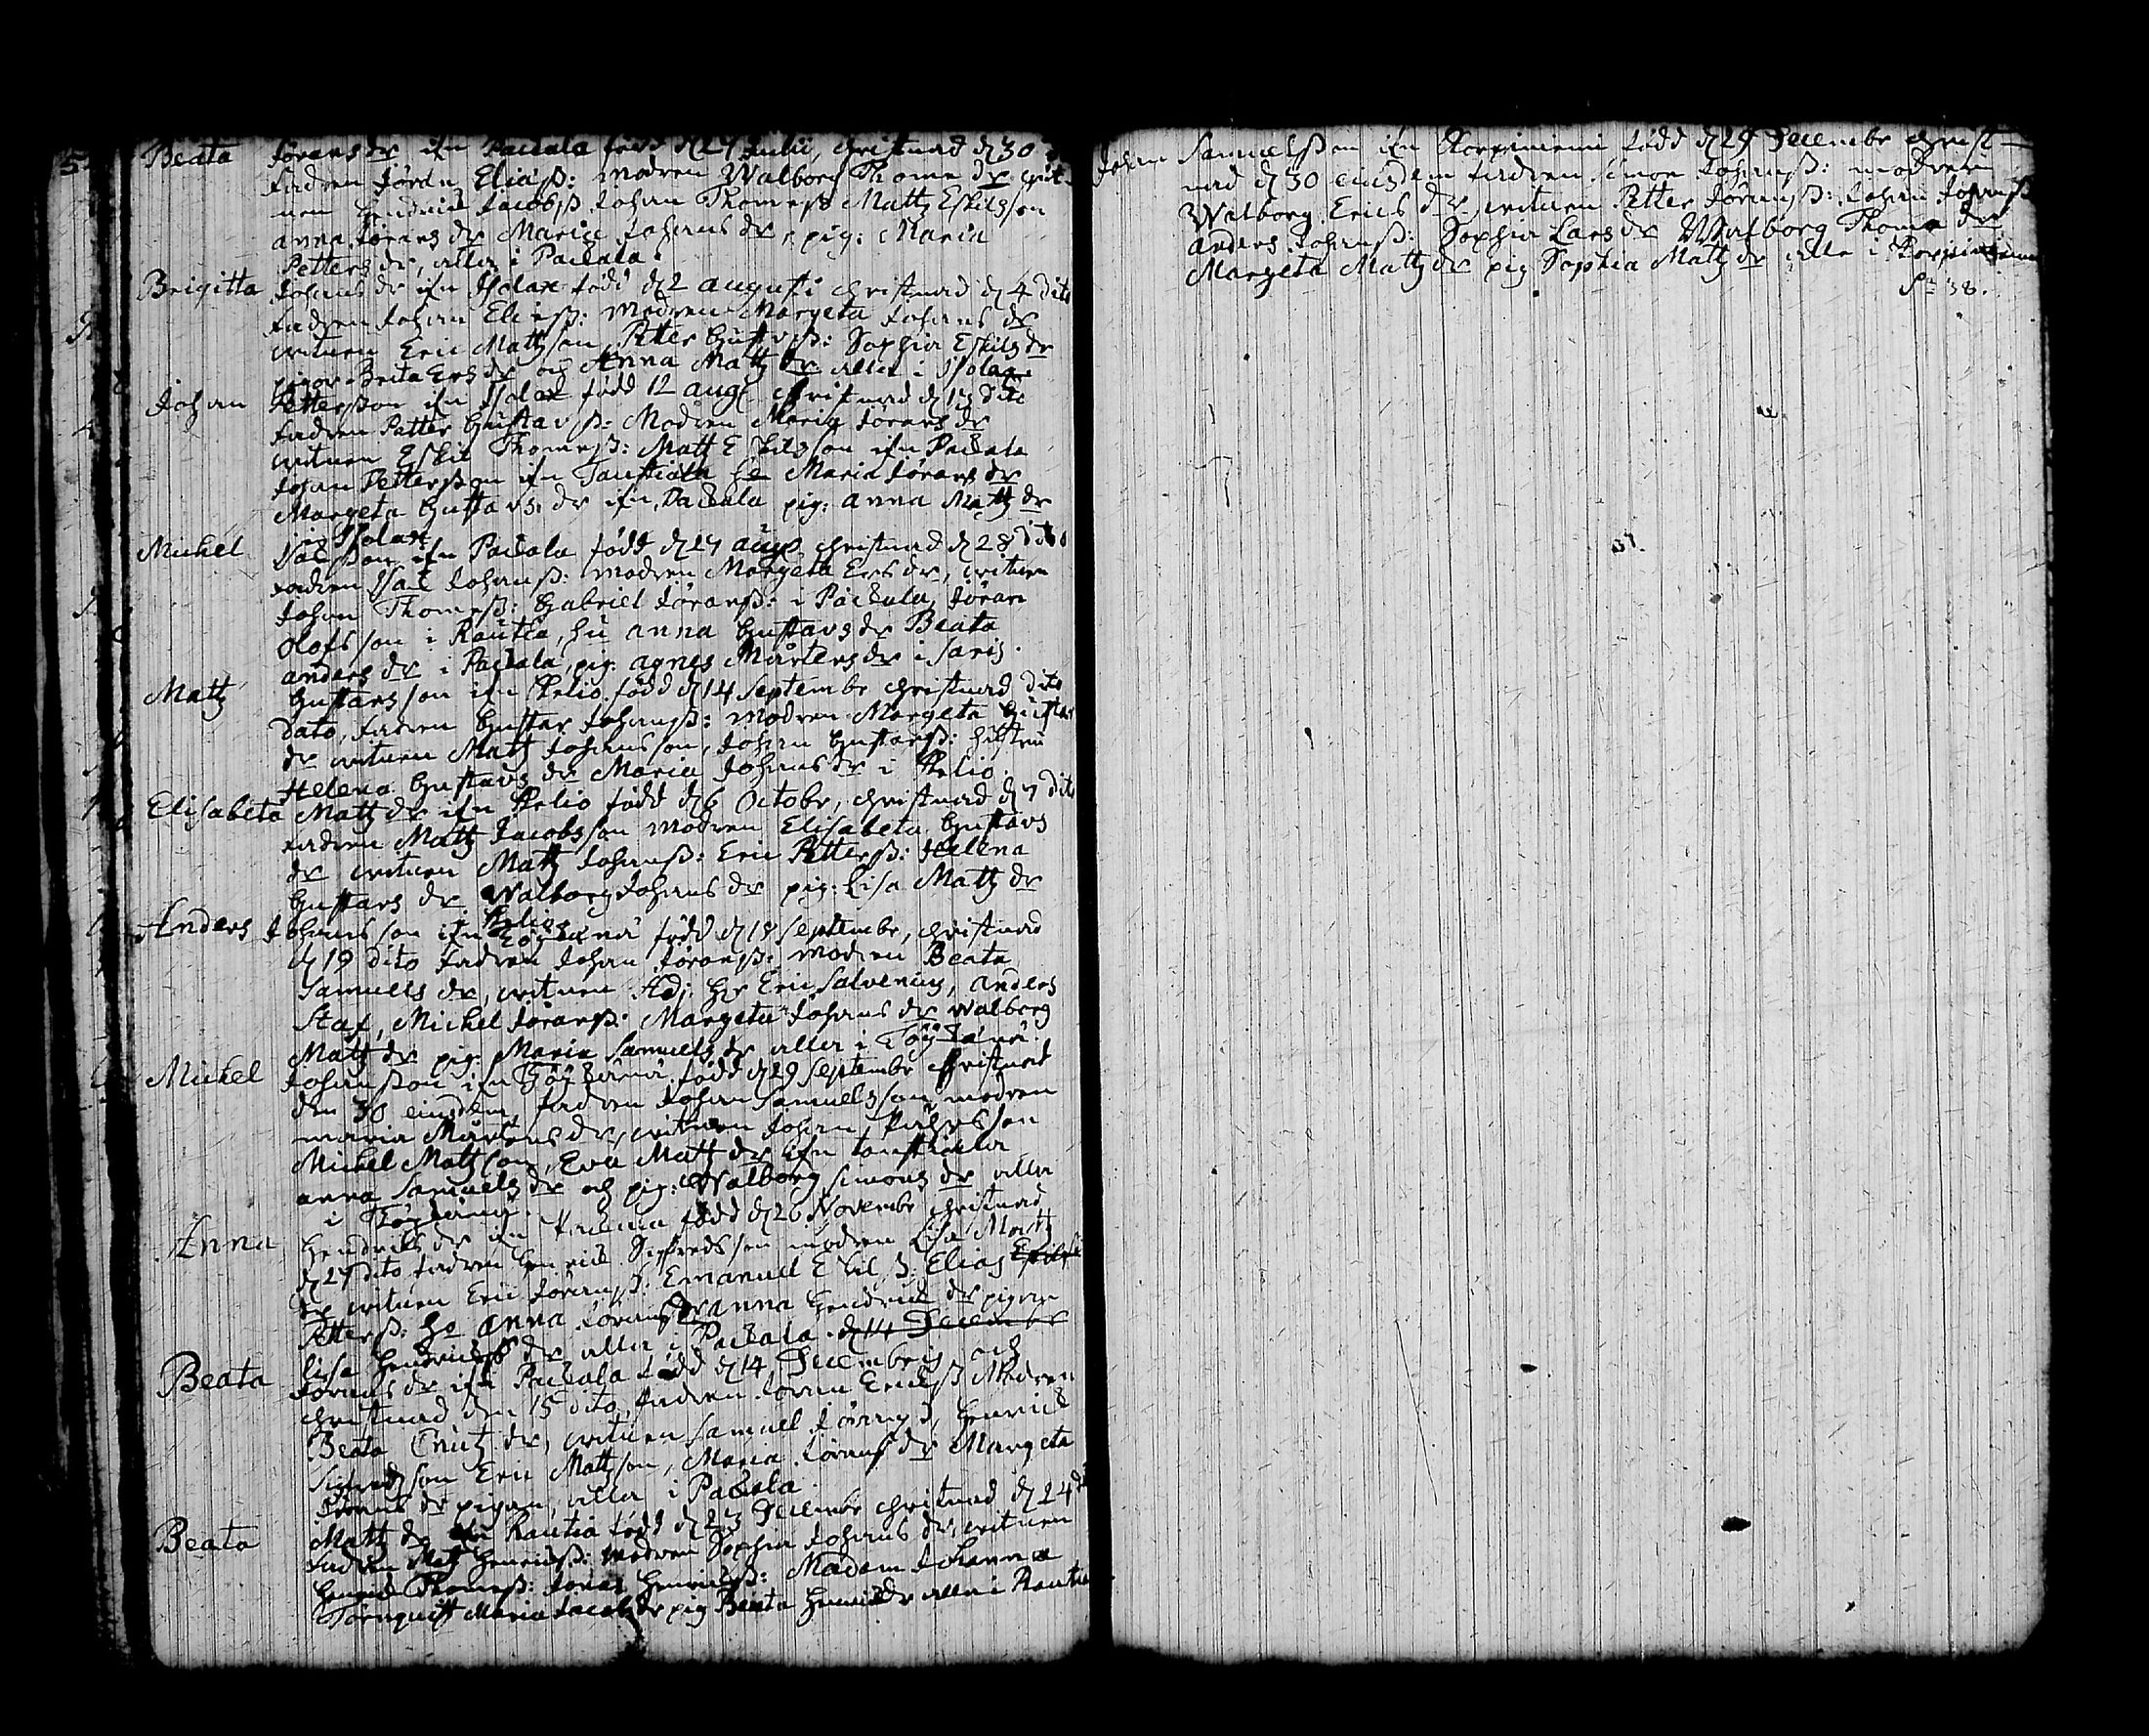 Beata Jörans dr ifn Packala född d 27 Julii, christnad d 30
fadren Jördn Eliaß: modren Walborg Thome dr wit-
nen Hendrich Jacobß Johan Thomeß Mattz Eskilsson
anna Jörans dr Maria Johans dr, pig: Maria
Petters dr, alla i Packala.
Brigitta Johans dr ifn Isolax född d 2 augusti christnad d 4 dito
fadren Johan Eliæß: modren Margeta Johans dr
witnen Eric Mattzson, Petter Gustafß: Sophia Eskils dr
pigor Brita Ers dr och Anna Mattz dr alla i Isolax
Johan Petterßon ifn Isolax född 12 aug christnad d 13 dito
fadren Petter Gustavß: Modren Maria Jörans dr
witnen Eskil Thomeß: Matt Eskilsson ifn Packala
Johan Petterßon ifn Taustiala he Maria Jörans dr
Margeta Gustavs dr ifn Packala pig: anna Mattz dr
i Isolax
Michel Isacsson ifn Packala född d 27 augs christnad d 28 dito
fadren Isac Johanß: modren Margeta Ers dr, witnen
Johan Thomeß: Gabriel Jöranß: i Packala, Jöran
Olofsson i Rautia, hu anna Gustavs dr Beata
anders dr i Packala, pig: agnes Mårtens dr i saris.
Mattz Gustavsson ifn Kelio född d 14 Septembr christnad dito
dato, fadren Gustav Johanß: modren Margeta Gustav
dr witnen Mattz Johansson, Johan Gustavß: hustru
Helena Gustavs dr Maria Johans dr i Kelio.
Elisabeta Mattz dr ifn Kelio född d 6 Octobr, christnad d 7 dito
fadren Mattz Jacobsson modren Elisabeta Gustavs
dr witnen Mattz Johanß: Eric Petterß: Helena
Gustavs dr Walborg Johans dr pig: Lisa Mattz dr
i Kelio
Anders Johansson ifn Töysänä född d 18 Septembr, christnad
d 19 dito fadren Johan Jöranß: modren Beata
Samuels dr, witnen Adj: Hr Eric Salvenius, anders
Staf, Michel Jöranß: Margeta Johans dr Walborg
Mattz dr pig: Maria Samuels dr alla i Töysänä.
Michel Johansson ifn Töysänä född d 29 Septembr christnad
den 30 eiusdem, fadren Johan Samuelsson modren
maria Mårtens dr, witnen Johan Påhlsson
Michel Mattsson, Eva Matts dr ifn taustiala
anna Samuels dr och pig: Walborg Simons dr alla
i Töysänä.
Anna Hendrichs dr ifn Packala född d 26 Novembr christnad
d 27 dito fadren Henrich Sigfredsson modren Lisa Mattz
dr witnen Eric Jöranß: Emanuel Eskilß: Elias
Petterß: ho anna Jörans dr anna Hendrich dr pigan
lisa Hendrichs dr alla i Packala. d 14 Decembr
Beata Jörans dr ifn Packala född d 14 Decembris och
christnad den 15 dito fadren Jöran Erichß Modren
Beata Cnutz dr, witnen Samuel Jöranß, Henrich
Sigfredsson Eric Mattzson, Maria Jörans dr Margeta
Jörans dr pigan, alla i Packala
Beata Mattz dr ifn Rautia född d 23 Decembr christnad d 24 d
fadren Matz Henrichß: Modren Sophia Johans dr, witnen
Henrich Thomeß: Jonas Henrichß: Madam Johanna
Törnquist Maria Jacobs dr pig Beata Henrich dr alla i Rautia
Johan Samuelsson ifn Korpiniemi född d 29 Decembr christ-
nad d 30 eiusdem fadren Simon Johanß: modren
Walborg Erics dr witnen Petter Jöranß: Johan Johanß
anders Johanß: Sophia Lars dr Walborg Thoma dr
Margeta Mattz dr pig Sophia Mattz dr alla i Korpiniemi
Sa 38.